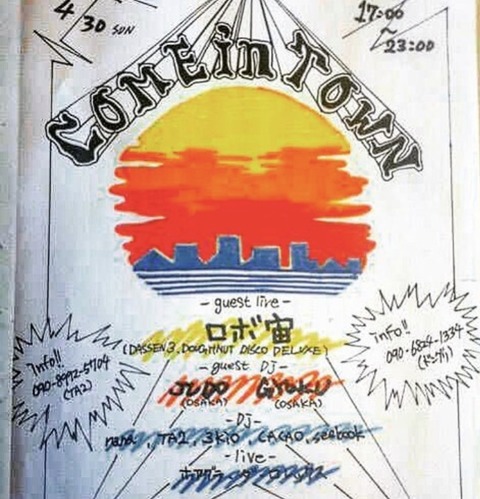 4
30 SUN
17:00
~
23:00
COME in TOWN
- guest live -
ロボ宙
(DASSEN3. DOUGHNUT DISCO DELUXE)
- guest DJ -
JUDO GYOKU
(OSAKA) (OSAKA)
- DJ -
nana, TA2, 3KiO CACAO, seebook
- live -
info!!
090-8992-5704
(TA2)
info!!
090-6824-1334